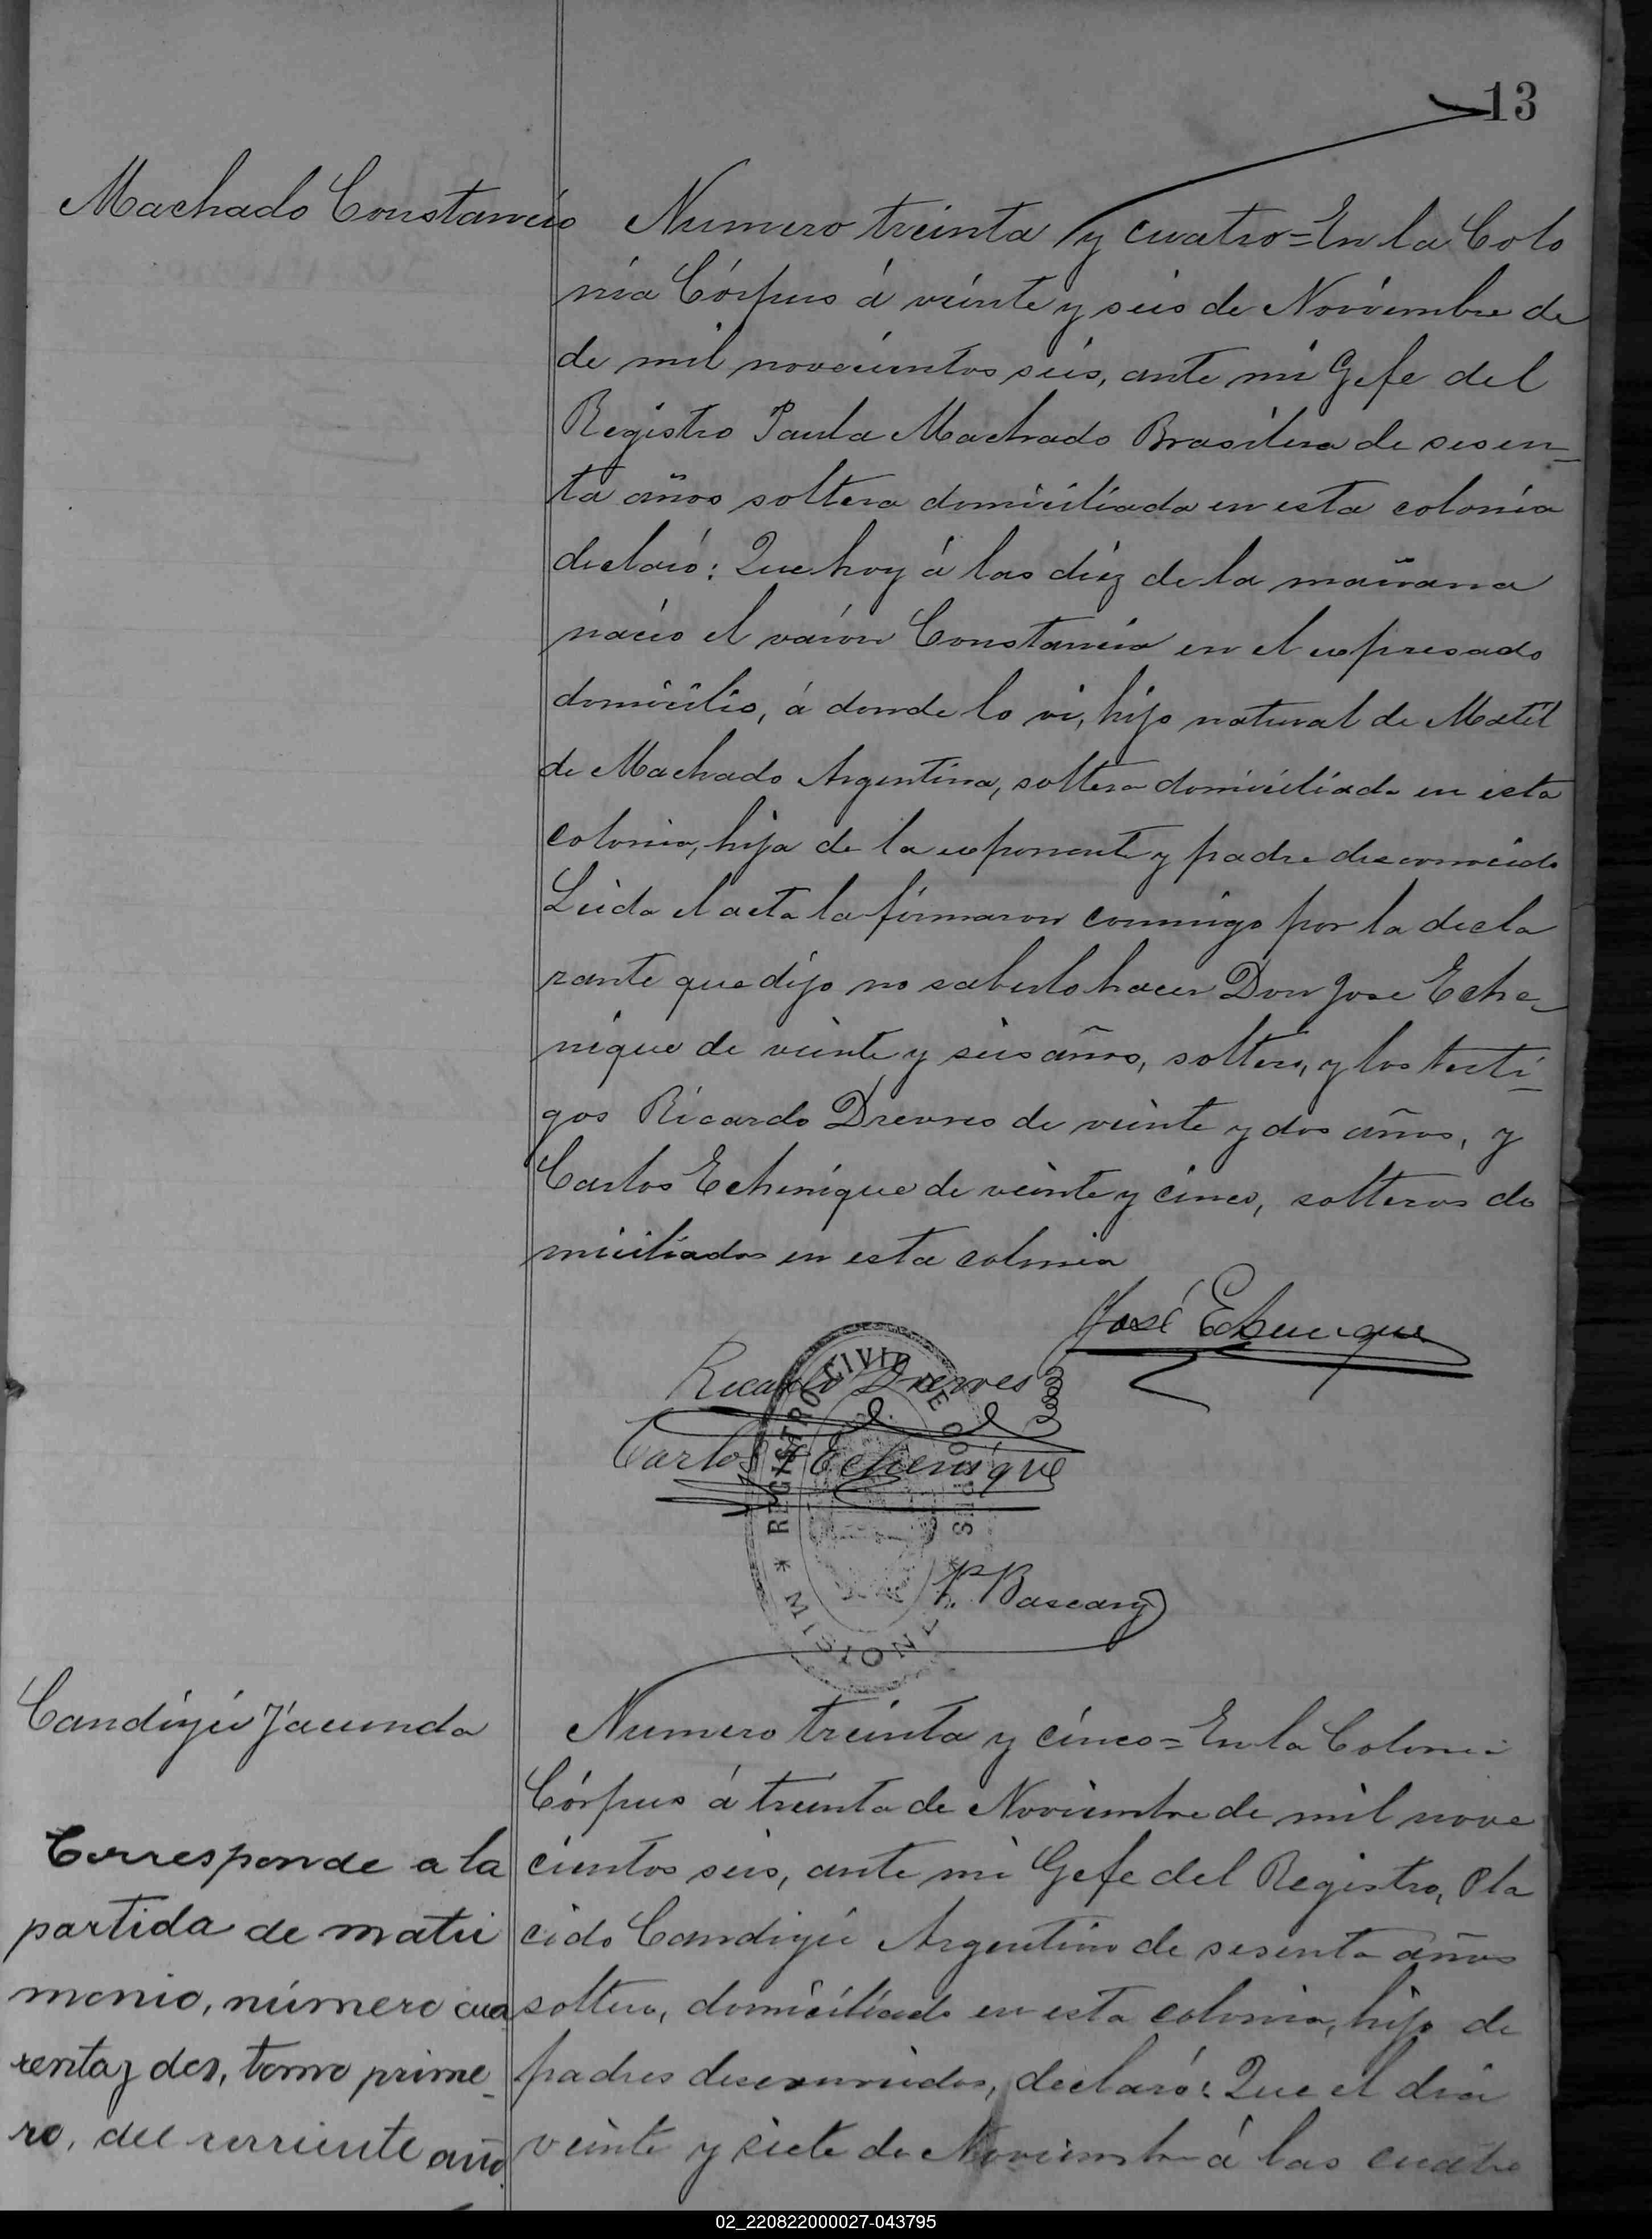 13
Machado Constancio
Numero treinta y cuatro = En la Colo
nia Córpus á veinte y seis de Noviembre de
de mil novecientos seis, ante mi Gefe del
Registro Paula Machado Brasilera de sesen-
ta años soltera domiciliada en esta colonia
declaró: Que hoy á las diez de la mañana
nació el varon Constancio en el expresado
domicilio, á donde lo vi, hijo natural de Matil
de Machado Argentina, soltera domiciliada en esta
colonia, hija de la exponente y padre desconocido
Leida el acta la firmaron conmigo por la decla
rante que dijo no saberlo hacer Don Jose Eche-
nique de veinte y seis años, soltero, y los testi-
gos Ricardo Drewes de veinte y dos años, y
Carlos Echenique de veinte y cinco, solteros do
miciliados en esta colonia
José Echenique
Ricardo Drewes
Carlos Echenique
REGISTRO CIVIL DE CORPUS
* MISIONES *
P. Bascary
Candiyú Jacunda
Numero treinta y cinco = En la Colonia
Córpus á treinta de Noviembre de mil nove
cientos seis, ante mi Gefe del Registro, Pla
cido Candiyú Argentino de sesenta años
soltero, domiciliado en esta colonia, hijo de
padres desconocidos, declaró: Que el dia
veinte y siete de Noviembre á las cuatro
Corresponde a la
partida de matri
monio, número cua
renta y dos, tomo prime-
ro, del corriente año.
02_220822000027-043795